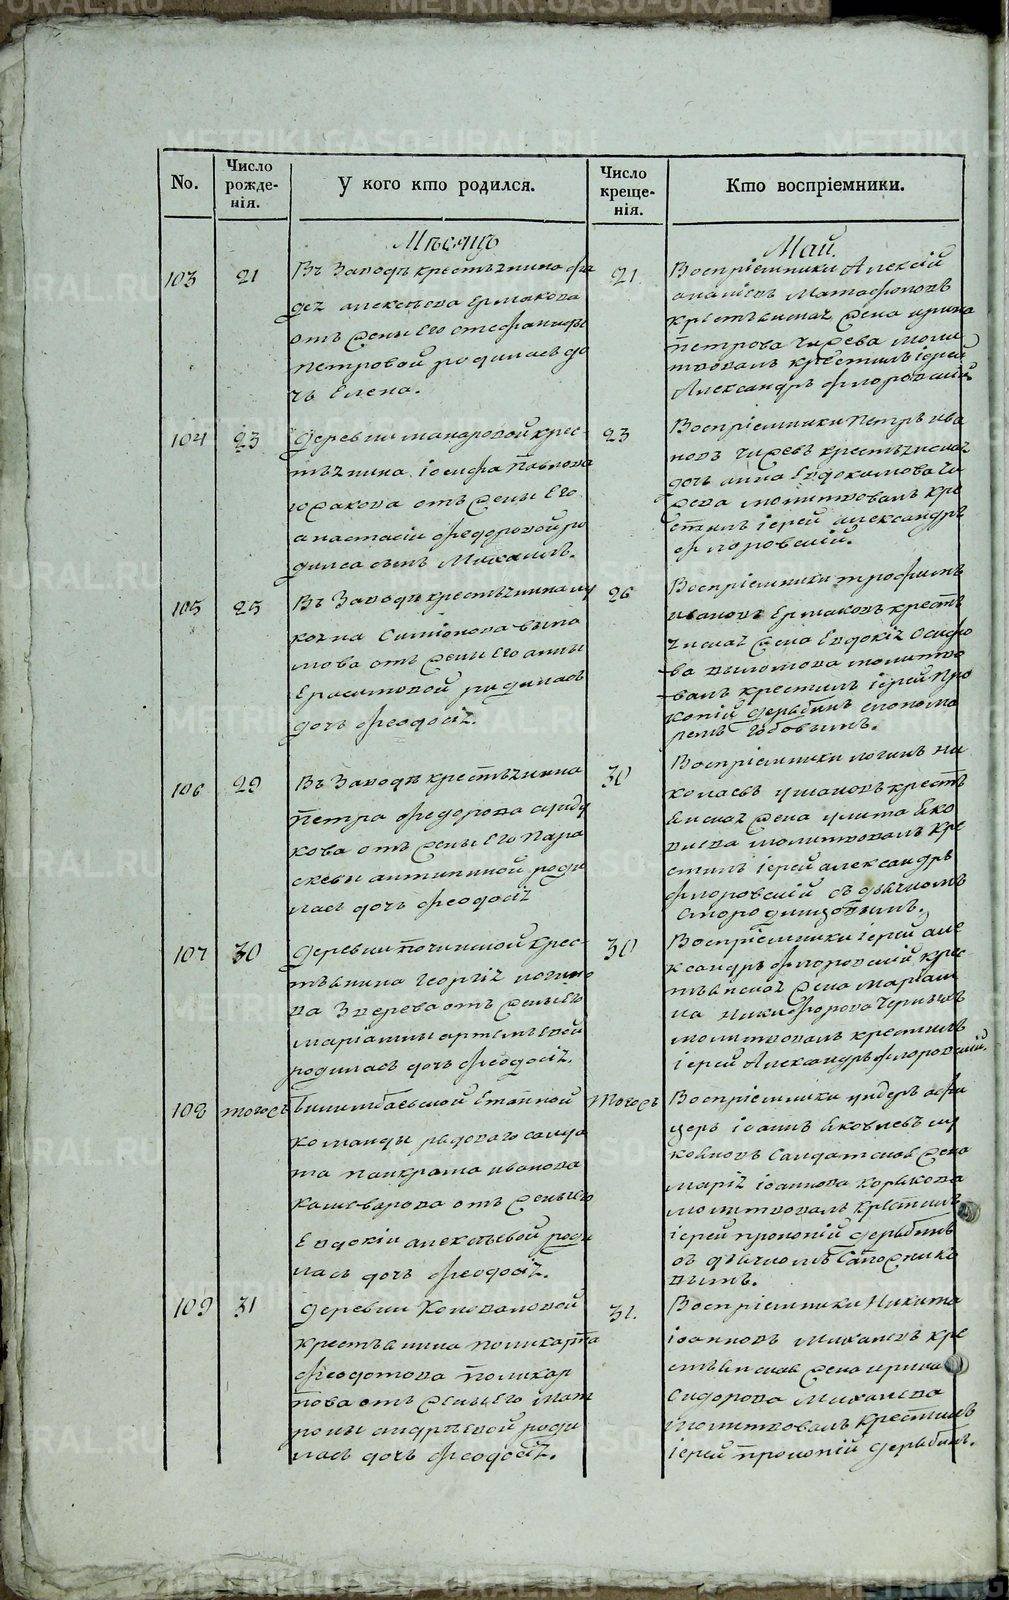 No.
Число рожде-
нія.
У кого кто родился.
Число
креще-
нія.
Кто воспріемники.
Мѣсяцъ
Май.
103
21
Въ Заводѣ крестьянина Фа
дея алексѣева Ермакова
отъ жены Его стефаниды
петровой родилась до
чь Елена.
21
Воспріемники Алексій
Матафоновъ
крестьянская жена ирина
петрова Чирева моли
твовалъ крестилъ іерей
Александръ флоровскій
104
23
Деревни макаровой крес-
тьянина іосифа Павлова
отъ жены Его
анастасіи Феодоровой ро
дился сынъ Михаилъ.
23
Воспріемники Петръ ива
новъ Чиревъ крестьянская
дочь анна Евдокимова Чи
рева молитвовалъ кре
стилъ іерей александръ
флоровскій.
105
25
Въ Заводѣ крестьянина лу
кояна Симіонова выло
мова отъ жены Его анны
Герасимовой родилась
дочь Феодосія.
26
Воспріемники трофимъ
ивановъ Ермаковъ кресть
янская жена Евдокія Осипо
ва выломова молитво
валъ крестилъ іерей про
копій Дерябинъ съ понома
ремъ
106
29
Въ Заводѣ крестьянина
Петра Федорова
кова отъ жены Его Пара
скевы антипиной роди
лась дочь Феодосія
30
Воспріемники логинъ ни
колаевъ ушаковъ кресть
янская жена улита Яко
влева молитвовалъ кре
стилъ іерей александръ
Флоровскій съ дьячкомъ
Смородинцовымъ.
107
30
Деревни починкой крес-
тьянина Георгія логино
ва Зверева отъ жены Его
маріамны артемьевой
родилась дочь Феодосія.
30
Воспріемники іерей але
ксандръ флоровскій крес
тьянская жена маріам
на никифорова Черныхъ
молитвовалъ крестилъ
іерей Александръ флоровскій.
108
тогожъ
билимбаевской Етапной
команды рядоваго салда
та панкрата иванова
кашеварова отъ жены его
Евдокіи алексѣевой роди
лась дочь Феодосія.
тогожъ
Воспріемники ундеръ афи
церъ іоаннъ Яковлевъ лу
кояновъ салдатская жена
марія іоаннова корюкова
молитвовалъ крестилъ
іерей прокопій дерябинъ
съ дьячкомъ Сапожнико
вымъ.
109
31
Деревни Коноваловой
крестьянина поликарпа
феодотова поликар
пова отъ жены Его мат
роны андрѣевой роди
лась дочь Феодосія.
31.
Воспріемники Никита
іоанновъ Михалевъ кре
стьянская жена ирина
Сидорова Михалева
Молитвовалъ крестилъ
іерей прокопій дерябинъ.
METRIKI.GASO-URAL.RU